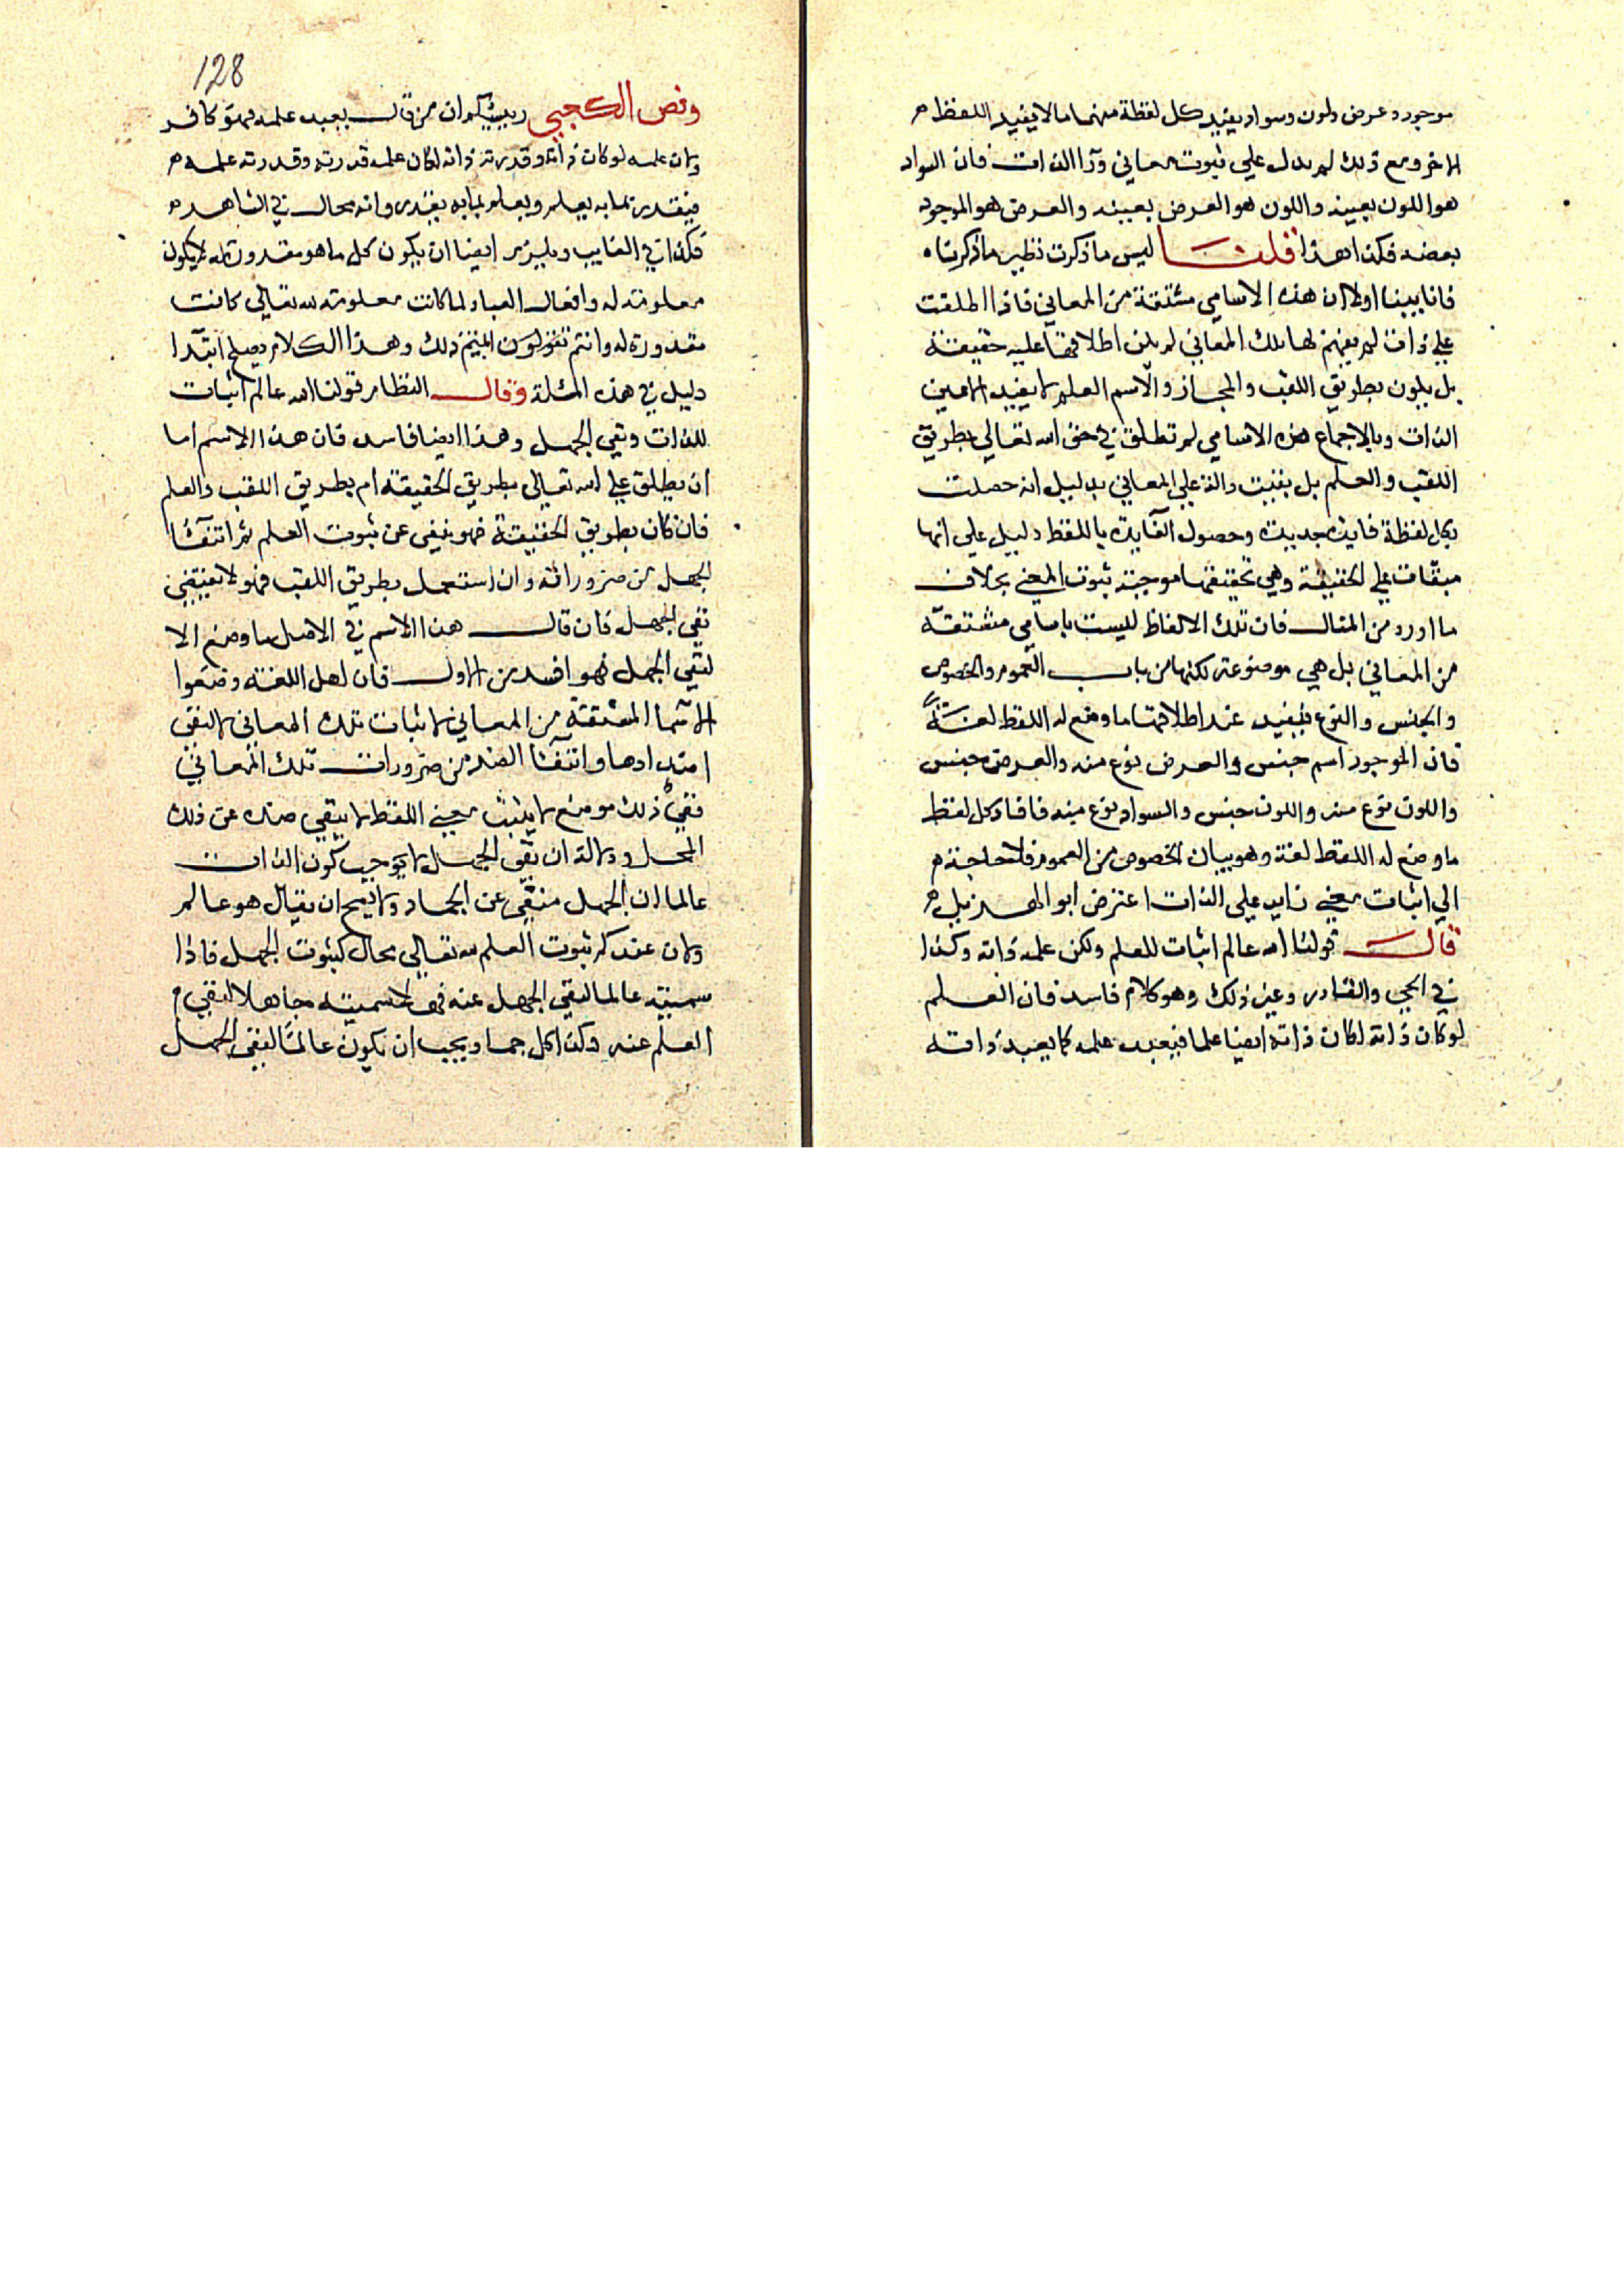 موجود وعرض ولون وسواد يفيد كل لفظة منهما ما لا يفيد اللفظ
الاخر ومع ذلك لم يدل علي ثبوت معاني ورا الذات فان السواد
هو اللون بعينه واللون هو العرض بعينه والعرض هو الموجود
بعضه فكذا هذا قلنا ليس ما ذكرت نظير ما ذكرناه
فانا بينا اولا ان هذه الاسامي مشتقة من المعاني فاذا اطلقت
علي ذات لم يفهم لها تلك المعاني لم يكن اطلاقها عليه حقيقة
بل يكون بطريق اللقب والمجاز والاسم العلم لا يفيد الا عين
الذات وبالاجماع هذه الاسامي لم تطلق في حق الله تعالي بطريق
اللقب والعلم بل بقيت دالة علي المعاني بدليل انه حصلت
بكل لفظة فايدة جديدة وحصول الفايدة باللفظ دليل علي انها
مبقات علي الحقيقة وهي تحقيقها موجبة ثبوت المعني بخلاف
ما اورد من المثال فان تلك الالفاظ ليست باسامي مشتقة
من المعاني بل هي موضوعة لكنها من باب العموم والخصوص
والجنس والنوع فيفيد عند اطلاقها ما وضع له اللفظ لغة
فان الموجود اسم جنس والعرض نوع منه والعرض جنس
واللون نوع منه واللون جنس والسواد نوع منه فافاد كل لفظ
ما وضع له اللفظ لغة وهو بيان الخصوص من العموم فلا حاجة
الي اثبات معني زايد علي الذات اعترض ابو الهذيل
قال قولنا الله عالم اثبات للعلم ولكن علمه ذاته وكذا
في الحي والقادر وغير ذلك وهو كلام فاسد فان العلم
لو كان ذاته لكان ذاته ايضا علما فيعبد علمه كما يعبد ذاته
128
ونص الكعبي رييسكم ان من قال يعبد علمه فهو كافر
ولان علمه لو كان ذاته وقدرته ذاته لكان علمه قدرته وقدرته علمه
فيقدر بما به يعلم ويعلم بما به يقدر وانه محال في الشاهد
فكذا في الغايب ويلزم ايضا ان يكون كل ما هو مقدور له يكون
معلومة له وافعال العباد لما كانت معلومة لله تعالي كانت
مقدورة له وانتم ذلك وهذا الكلام يصلح ابتدا
دليل في هذه المسلة وقال النظام قولنا الله عالم اثبات
للذات ونفي الجهل وهذا ايضا فاسد فان هذا الاسم اما
ان يطلق علي الله تعالي بطريق الحقيقة ام بطريق اللقب والعلم
فان كان بطريق الحقيقة فهو ينبي عن ثبوت العلم ثم انتفا
الجهل من ضروراته وان استعمل بطريق اللقب فهو لا يقتضي
نفي الجهل فان قال هذا الاسم في الاصل ما وضع الا
لنفي الجهل فهو افسد من الاول فان اهل اللغة وضعوا
الاسما المشتقة من المعاني لاثبات تلك المعاني لا لنفي
اضدادها وانتفا الضد من ضرورات تلك المعاني
ففي ذلك موضع لا يثبت معني اللفظ لا ينتفي ضده عن ذلك
المحل ودلالة ان نفي الجهل لا يوجب كون الذات
عالما ان الجهل منتفي عن الجماد ولا يصح ان يقال هو عالم
ولان عندكم ثبوت العلم لله تعالي محال كثبوت الجهل فاذا
سميته عالما لنفي الجهل عنه فهلا سميته جاهلا لنفي
العلم عنه وكذا كل جماد يجب ان يكون عالما لنفي الجهل